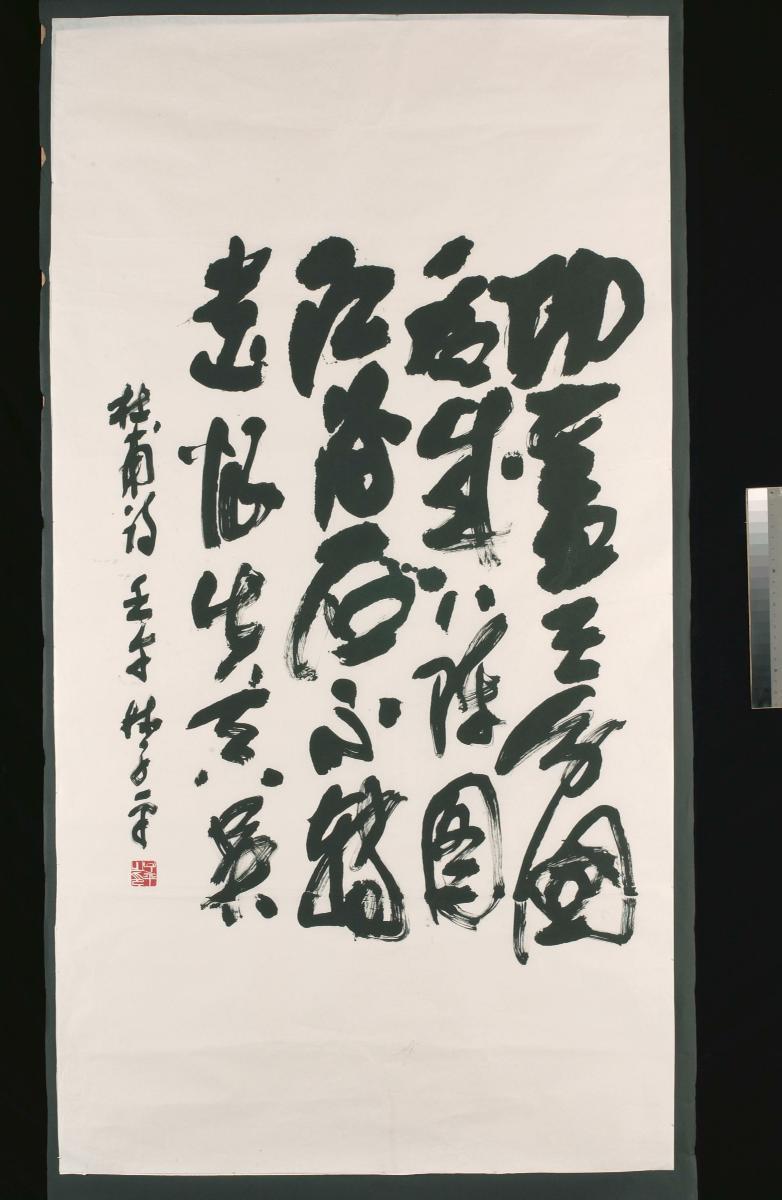 功蓋三分國
名成八陣圖
江流石不轉
遺恨失吞吳
杜甫詩 壬午 林子平